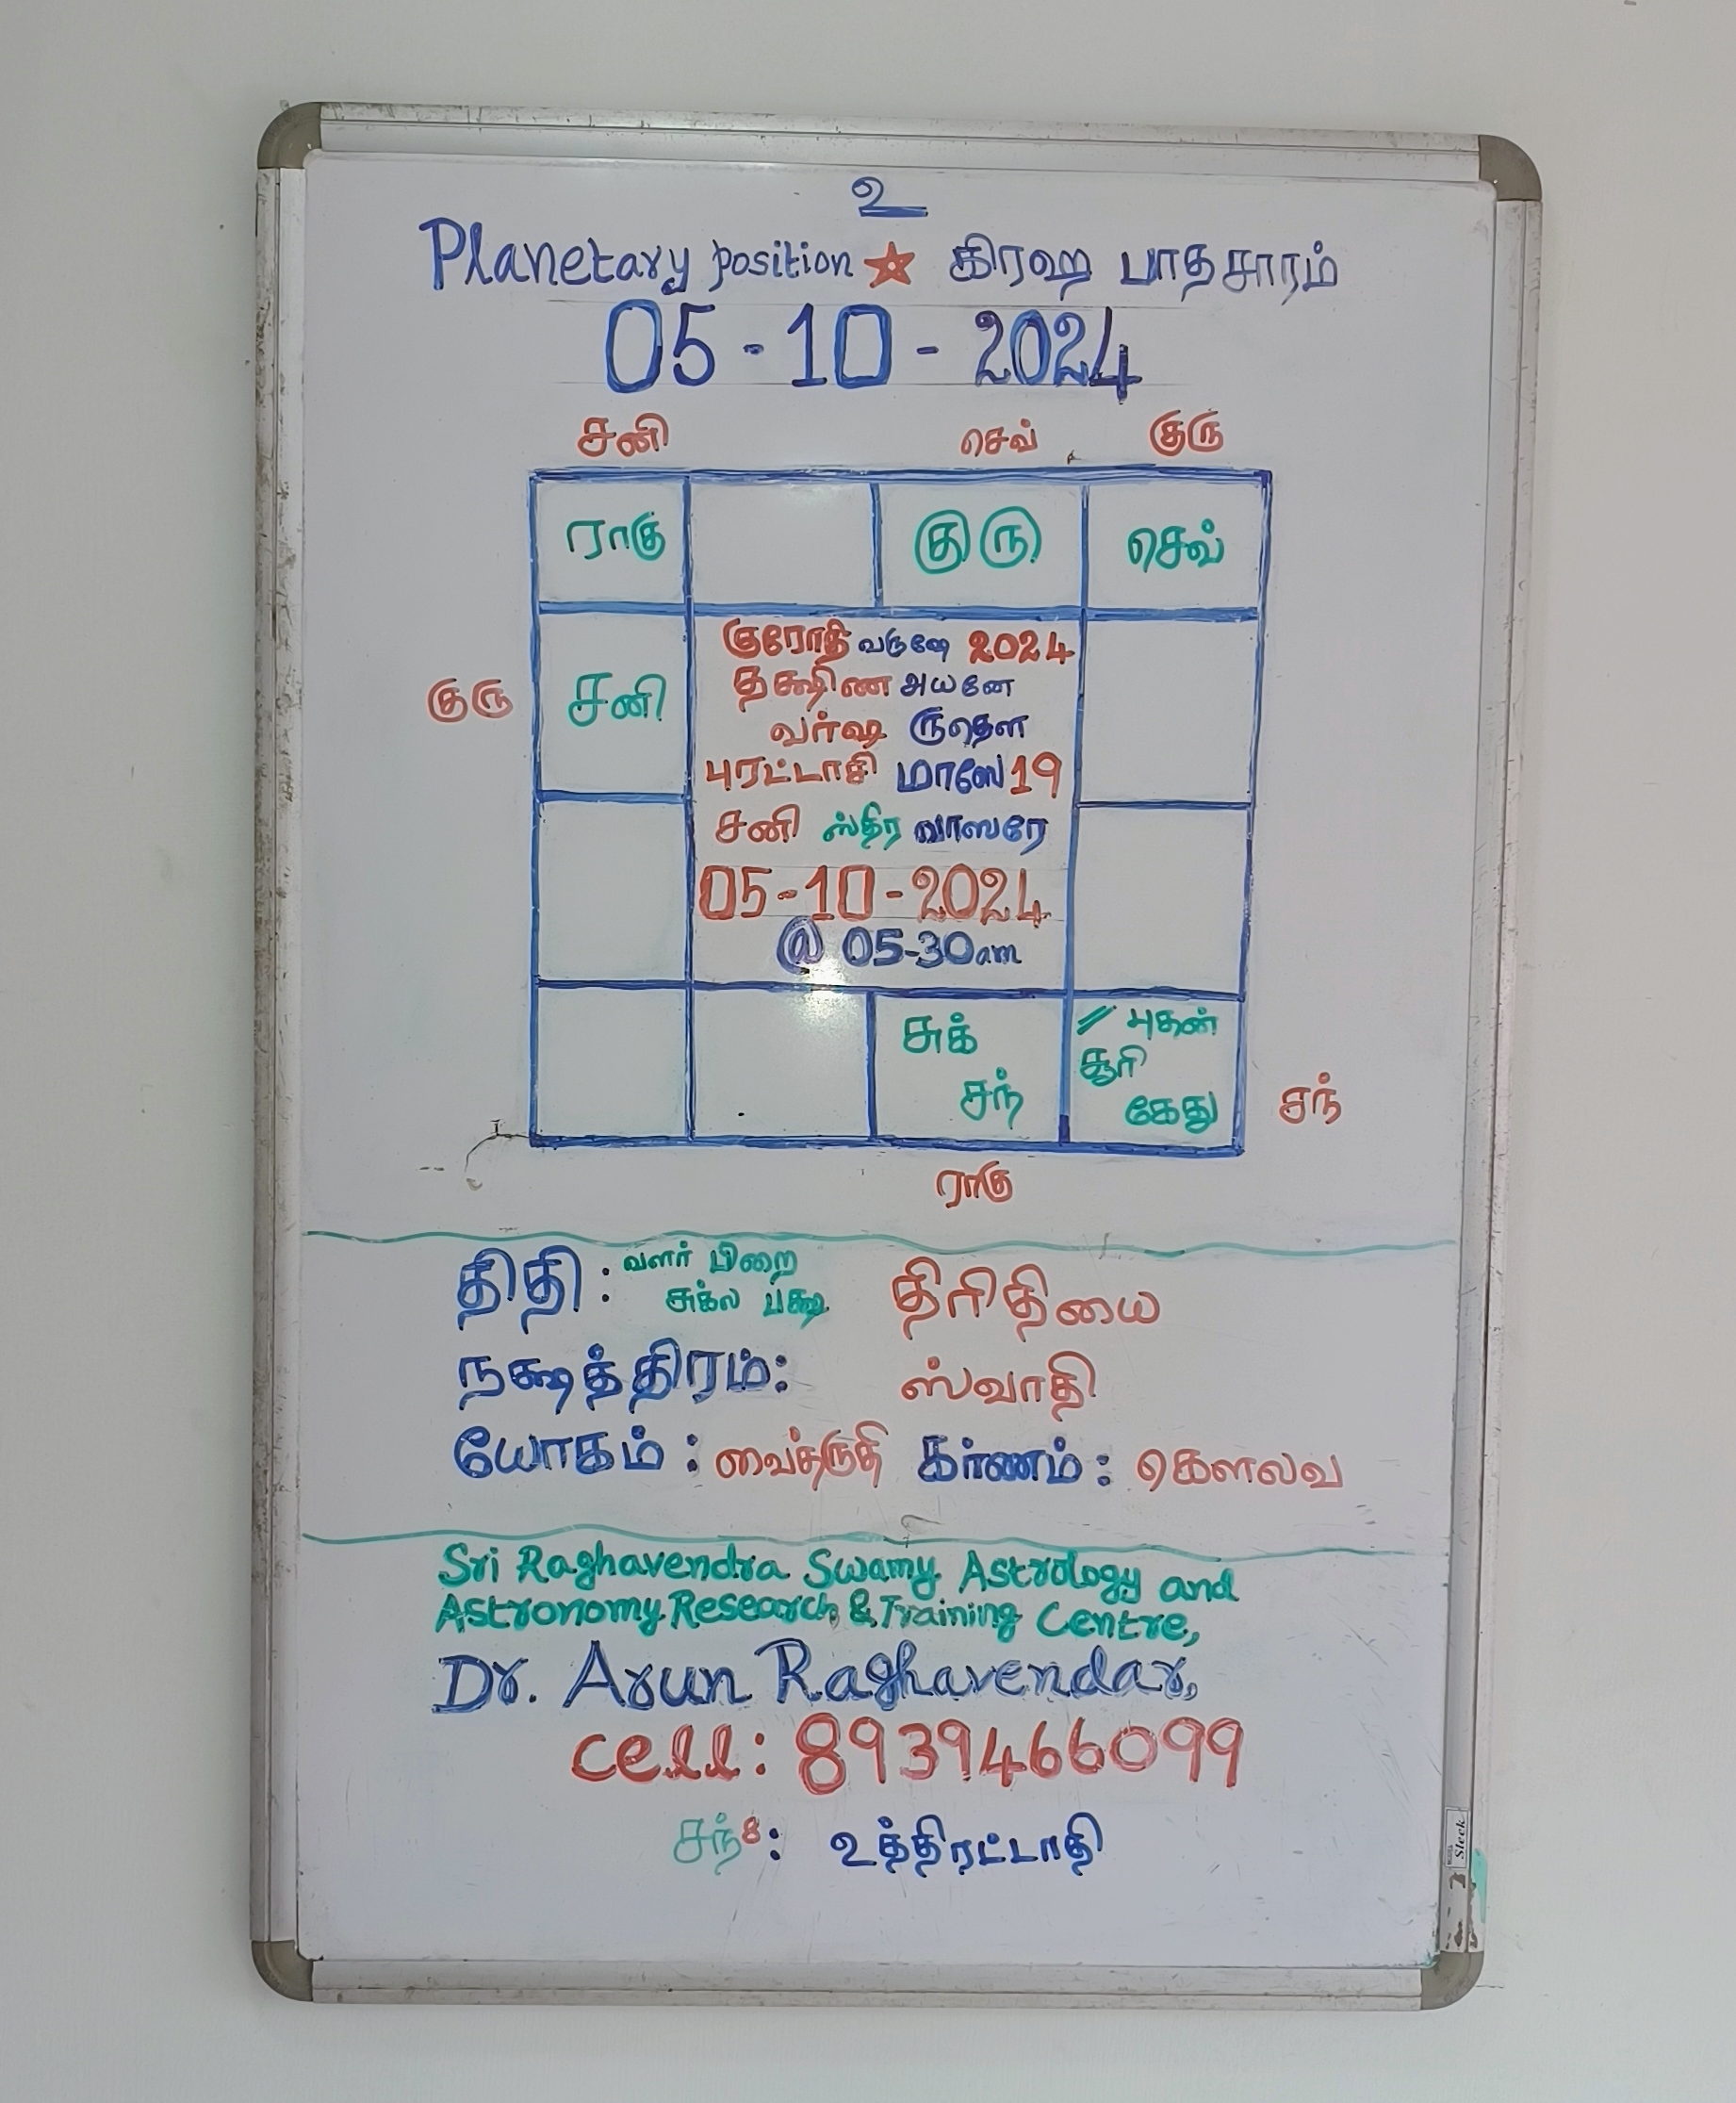 உ
Planetary position ★ கிரஹ பாதசாரம்
05-10-2024
சனி செவ் குரு
ராகு குரு செவ்
குரோதி வருஷே 2024
தக்ஷிண அயனே
குரு சனி
வர்ஷ ருதௌ
புரட்டாசி மாஸே 19
சனி ஸ்திர வாஸரே
05-10-2024
@ 05-30am
சுக் // புதன்
சூரி
சந் கேது சந்
ராகு
திதி: வளர் பிறை
சுக்ல பக்ஷ திரிதியை
நக்ஷத்திரம்: ஸ்வாதி
யோகம்: வைத்ருதி கர்ணம்: கௌலவ
Sri Raghavendra Swamy Astrology and
Astronomy Research & Training Centre,
Dr. Arun Raghavendar,
cell: 8939466099
சந்8: உத்திரட்டாதி
Sleek